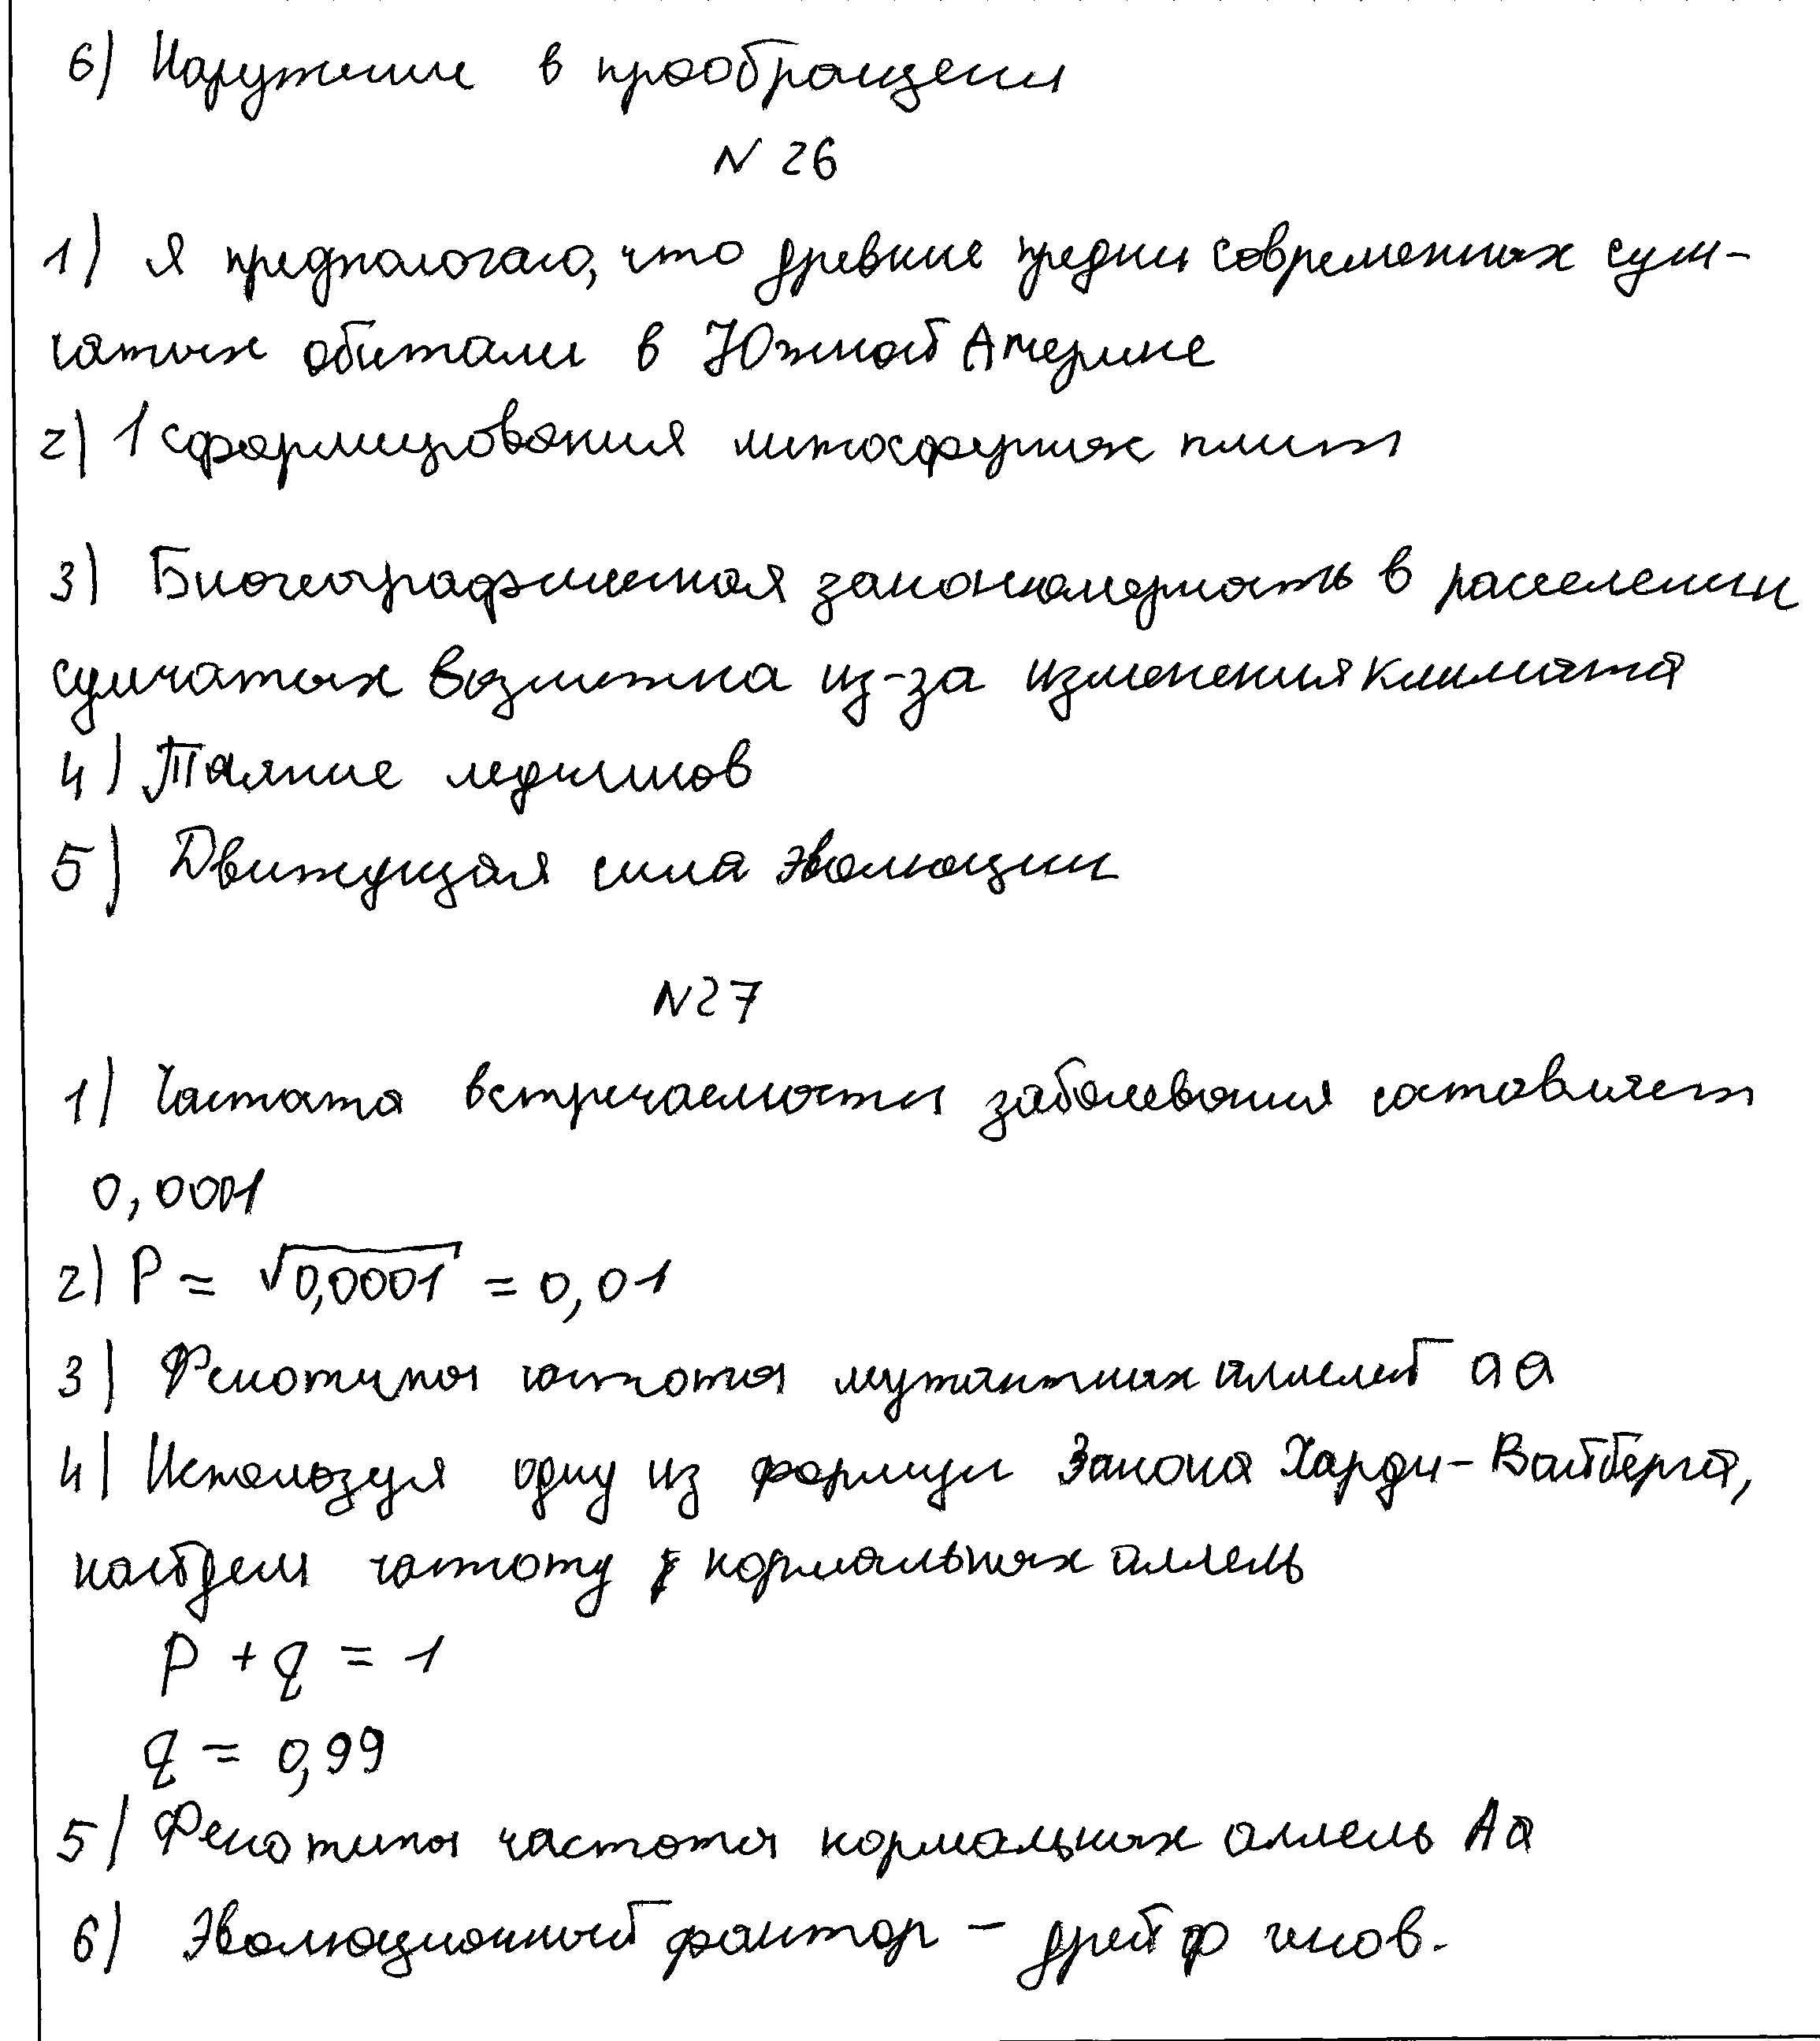 6) Нарушение в прообращени
N 26
1) Я предпологаю, что древние предки современных сум-
чатых обитали в Южной Америке
2) 1 сформирования литосферных плит
3) Биогеографическая закономерность в расселении
сумчатых возможна из-за изменения климата
4) Таяние ледников
5) Движущая сила эволюции
N27
1) Частота встречаемости заболевания составляет
0,0001
2) P = √0,0001 = 0,01
3) Фенотипы частоты мутантных аллелей aa
4) Используя одну из формул Закона Харди-Вайберга,
найдем частоту нормальных аллель
P + q = 1
q = 0,99
5) Фенотипы частоты нормальных аллель Aa
6) Эволюционный фактор - дрейф генов.